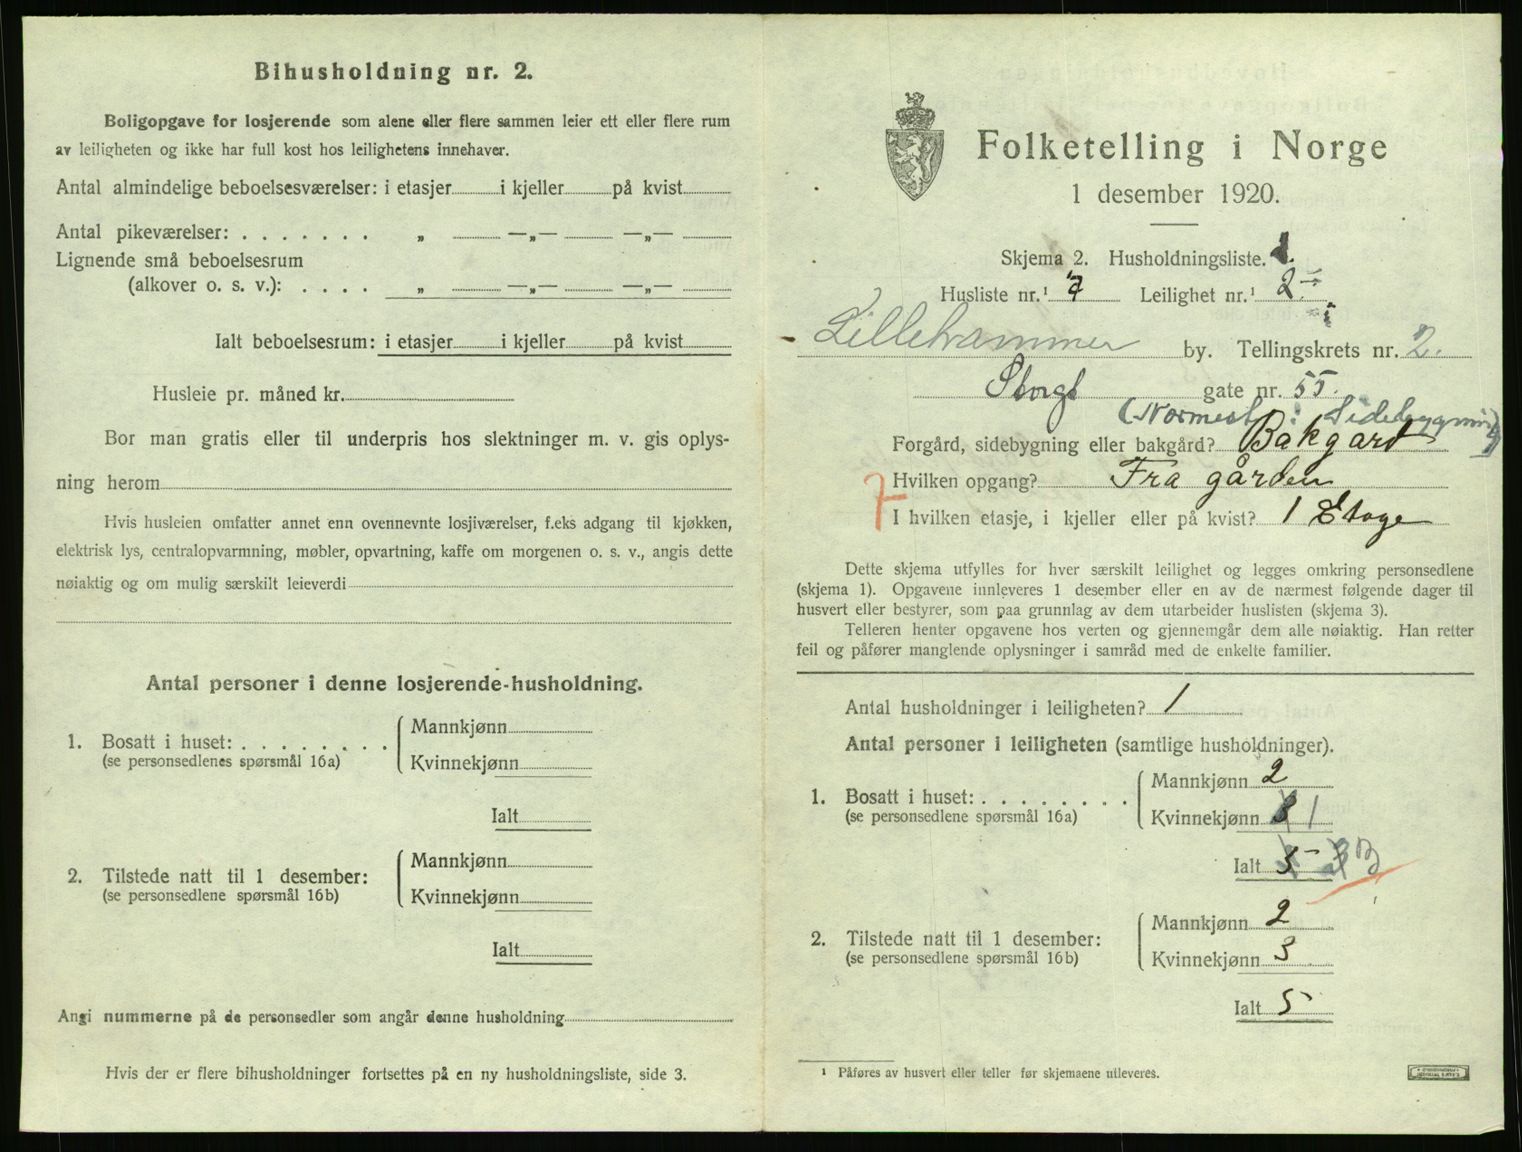 Bihusholdning nr. 2.
Boligopgave for losjerende som alene eller flere sammen leier ett eller flere rum
av leiligheten og ikke har full kost hos leilighetens innehaver.
Antal almindelige beboelsesværelser: i etasjer i kjeller på kvist
Antal pikeværelser: . . . . . . . „ —„— —„—
Lignende små beboelsesrum
(alkover o. s. v.): . . . . „ —„— —„—
Ialt beboelsesrum: i etasjer i kjeller på kvist
Husleie pr. måned kr.
Bor man gratis eller til underpris hos slektninger m. v. gis oplys-
ning herom
Hvis husleien omfatter annet enn ovennevnte losjiværelser, f.eks adgang til kjøkken,
elektrisk lys, centralopvarmning, møbler, opvartning, kaffe om morgenen o. s. v., angis dette
nøiaktig og om mulig særskilt leieverdi
Antal personer i denne losjerende-husholdning.
1. Bosatt i huset: . . . . . . . .
(se personsedlenes spørsmål 16a)
Mannkjønn
Kvinnekjønn
Ialt
2. Tilstede natt til 1 desember:
(se personsedlene spørsmål 16b)
Mannkjønn
Kvinnekjønn
Ialt
Angi nummerne på de personsedler som angår denne husholdning
Hvis der er flere bihusholdninger fortsettes på en ny husholdningsliste, side 3.
Folketelling i Norge
1 desember 1920.
Skjema 2. Husholdningsliste.
Husliste nr.¹ 7 Leilighet nr.¹ 2
Lillehammer by. Tellingskrets nr. 2.
Storgt gate nr. 55.
(Nærmest: Sidebygning)
Forgård, sidebygning eller bakgård? Bakgard
Hvilken opgang? Fra gården
7
I hvilken etasje, i kjeller eller på kvist? 1 Etage
Dette skjema utfylles for hver særskilt leilighet og legges omkring personsedlene
(skjema 1). Opgavene innleveres 1 desember eller en av de nærmest følgende dager til
husvert eller bestyrer, som paa grunnlag av dem utarbeider huslisten (skjema 3).
Telleren henter opgavene hos verten og gjennemgår dem alle nøiaktig. Han retter
feil og påfører manglende oplysninger i samråd med de enkelte familier.
Antal husholdninger i leiligheten? 1
Antal personer i leiligheten (samtlige husholdninger).
1. Bosatt i huset: . . . . . . . .
(se personsedlene spørsmål 16a)
Mannkjønn 2
Kvinnekjønn 3 1
Ialt 5 3
2. Tilstede natt til 1 desember:
(se personsedlene spørsmål 16b)
Mannkjønn 2
Kvinnekjønn 3
Ialt 5
¹ Påføres av husvert eller teller før skjemaene utleveres.